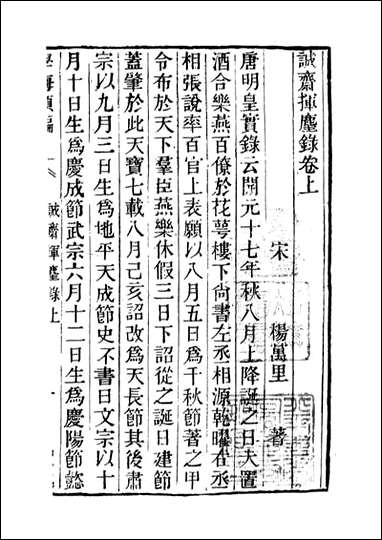 誠齋揮麈錄卷上
宋 楊萬里 著
唐明皇實錄云開元十七年秋八月上降誕之日大置
酒合樂燕百僚於花萼樓下尚書左丞相源乾曜右丞
相張說率百官上表願以八月五日爲千秋節著之甲
令布於天下羣臣燕樂休假三日下詔從之誕日建節
蓋肇於此天寶七載八月己亥詔改爲天長節其後肅
宗以九月三日生爲地平天成節史不書日文宗以十
月十日生爲慶成節武宗六月十二日生爲慶陽節懿
學海類編
誠齋揮麈錄上